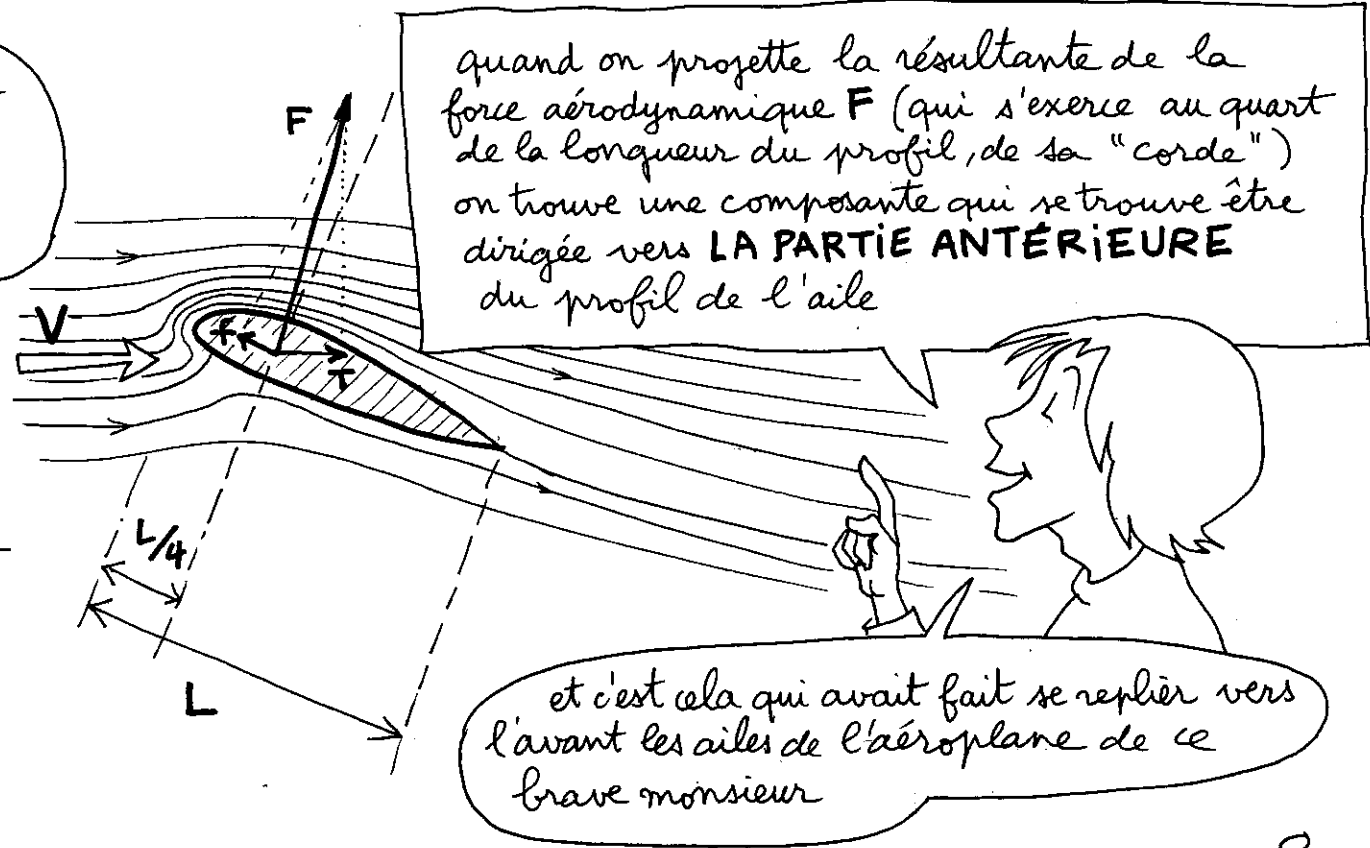 quand on projette la résultante de la
force aérodynamique F (qui s'exerce au quart
de la longueur du profil, de sa "corde")
on trouve une composante qui se trouve être
dirigée vers LA PARTIE ANTÉRIEURE
du profil de l'aile
F
V
f
T
L/4
L
et c'est cela qui avait fait se replier vers
l'avant les ailes de l'aéroplane de ce
brave monsieur